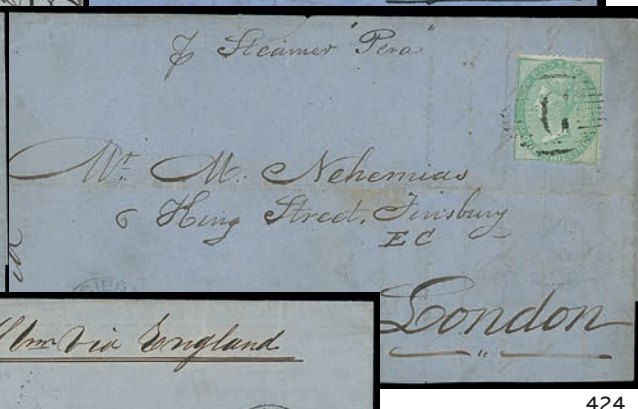 p Steamer "Pera"
G
Mr. M. Nehemias
6 King Street, Finsbury
E C
London
via England
424